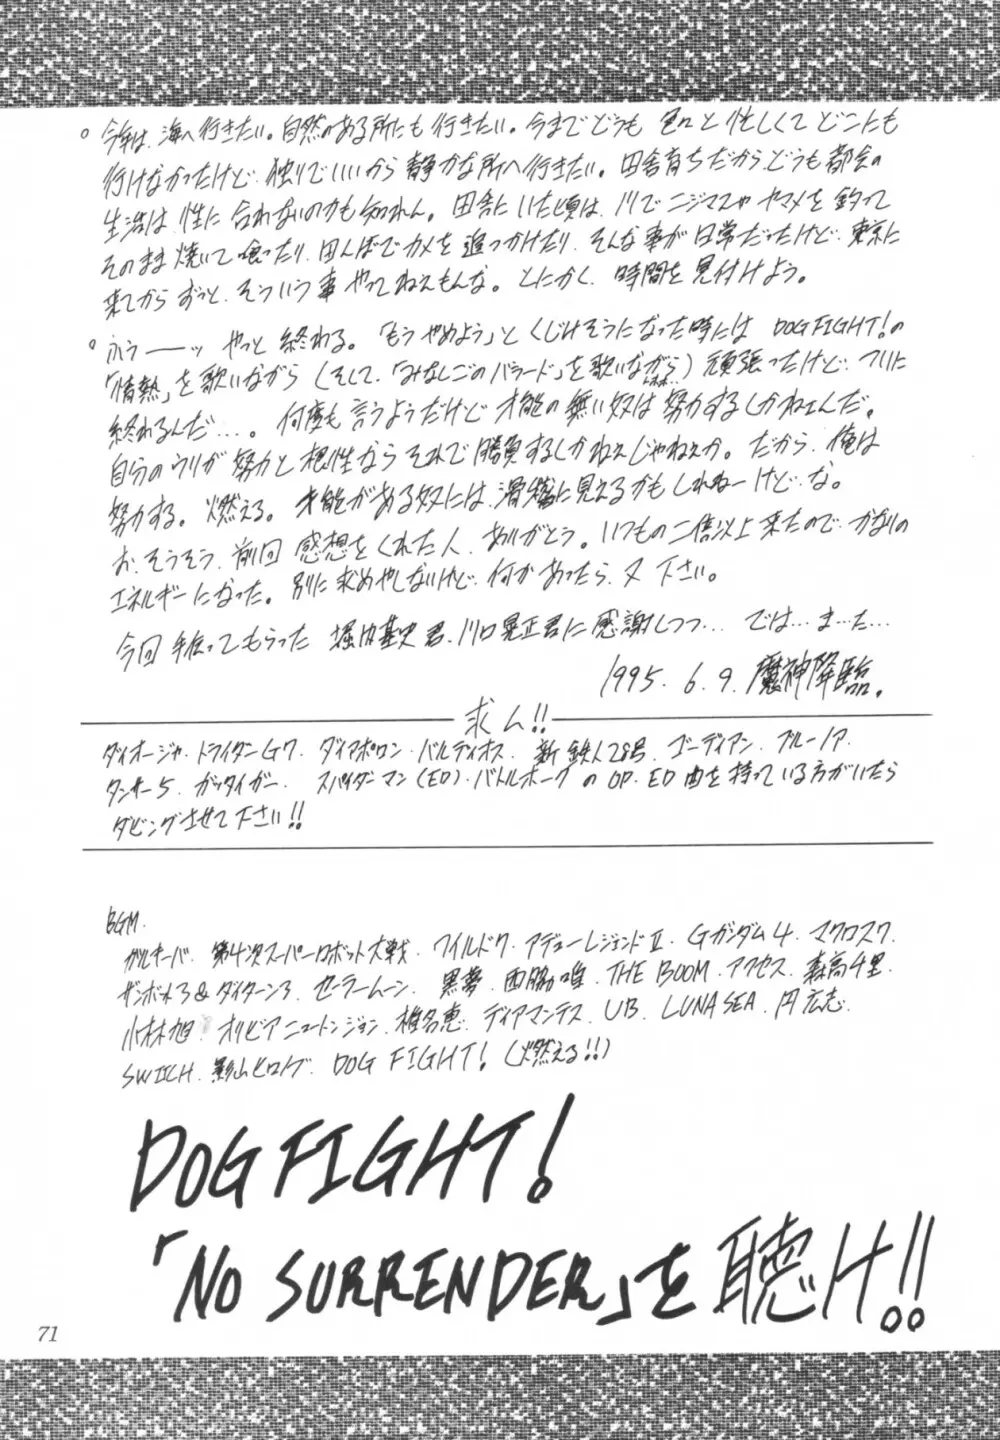 。今年は、海へ行きたい。自然のある所にも行きたい。今までどうも色々と忙しくてどこにも
行けなかったけど、独りでいいから静かな所へ行きたい。田舎育ちだから、どうも都会の
生活は性に合わないのかも知れん。田舎にいた頃は、川でニジマスやヤマメを釣って
そのまま焼いて喰ったり、田んぼでカメを追っかけたり、そんな事が日常だったけど、東京に
来てからずっと、そういう事やってねえもんな。とにかく、時間を見付けよう。
。ふうーーッ やっと終わる。「もうやめよう」とくじけそうになった時には DOG FIGHT!の
「情熱」を歌いながら（そして、「みなしごのバラード」を歌いながら）頑張ったけど、ついに
終わるんだ…。何度も言うようだけど才能の無い奴は努力するしかねェんだ。
自分のウリが努力と根性ならそれで勝負するしかねェじゃねェか。だから、俺は
努力する。燃える。才能がある奴には、滑稽に見えるかもしれねーけど、な。
お、そうそう、前回感想をくれた人、ありがとう。いつもの二倍以上来たので、かなりの
エネルギーになった。別に求めやしないけど、何かあったら、又下さい。
今回手伝ってもらった 堀内基史君、川口晃正君に感謝しつつ… では…ま…た…
1995. 6. 9. 魔神降臨.
求ム!!
ダイオージャ、トライダーG7、ダイアポロン、バルディオス、新鉄人28号、ゴーディアン、ブルーノア、
タンサー5、ガッタイガー、スパイダーマン(ED)、バトルホークのOP・ED曲を持っている方がいたら
ダビングさせて下さい!!
BGM.
ガルキーバ、第4次スーパーロボット大戦、ワイルド7、アデューレジェンドII、Gガンダム4、マクロス7、
ザンボット3&ダイターン3、セーラームーン、黒夢、西脇唯、THE BOOM、アクセス、森高千里、
小林旭、オリビアニュートンジョン、椎名恵、ディアマンテス、UB、LUNA SEA、円広志、
SWITCH、影山ヒロノブ、DOG FIGHT!(燃える!!)
DOG FIGHT!
「NO SURRENDER」を聴け!!
71